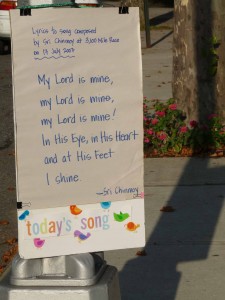 Lyrics to song composed
by Sri Chinmoy at 3,100 Mile Race
on 19 July 2007
My Lord is mine,
my Lord is mine,
my Lord is mine!
In His Eye, in His Heart
and at His Feet
I shine.
—Sri Chinmoy
today's song